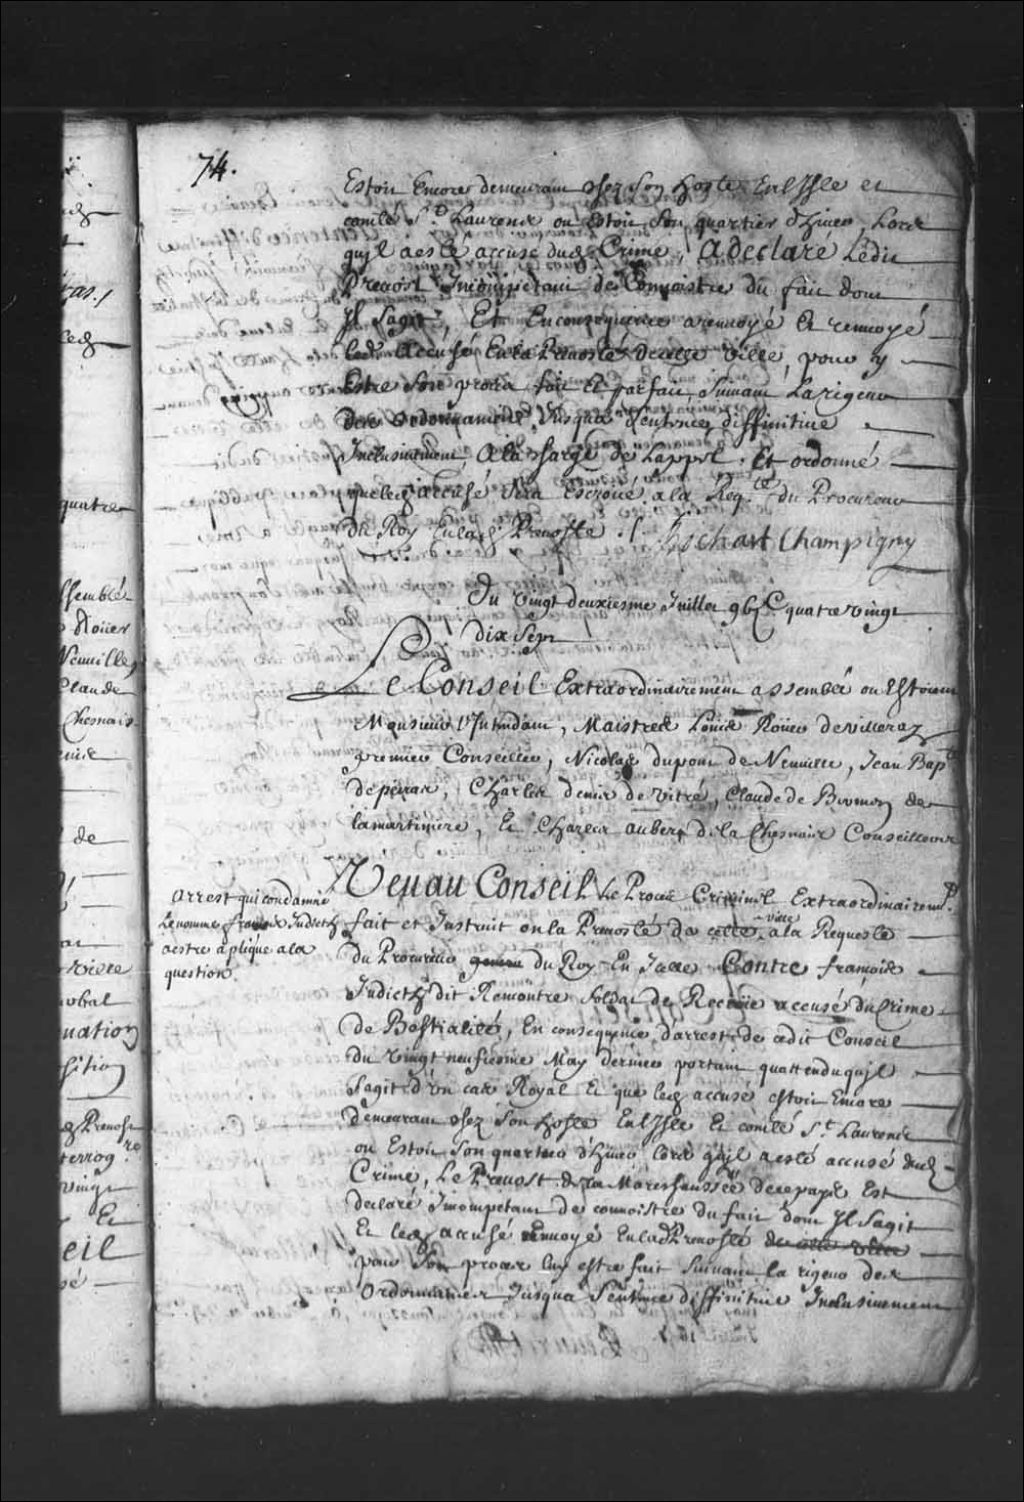 74.
Estoit Encores demeurant chez Son hoste En l'Isle et
comté St Laurence ou Estoit Son quartier d'hiver, Lors
qu'jl a esté accusé dud. Crime, A declaré Ledit
Prevost Jncompetant de Connoistre du fait dont
Jl Sagit, Et En consequence a renvoyé Et renvoye
led. Accusé En la Prevosté de cette Ville, pour y
Estre Son procez fait Et parfait, Suivant La rigeur
des ordonnances, Jusqu'a Sentence diffinitive
Jnclusivement, A la charge de Lappel. Et ordonné
que led. accusé Sera Escroué a la Reqte du Procureur
du Roy En lad. Prevosté ./. Bochart Champigny
Du vingt deuxiesme Juillet gbjC quatre vingt
dix Sept
Le Conseil Extraordinairement assemblé ou Estoient
Monsieur L'Jntendant, Maistres Louis Roüer de villeray
premier Conseiller, Nicolas dupont de Neuville, Jean Bapte
depeiras, Charles denis de Vitré, Claude de Bermen de
lamartiniere, Et Charles aubert de la Chesnais Conseillers
Arrest qui condamne
Le nomme françois Judicth
a estre apliqué a la
question.
Veu au Conseil Le Procés Criminel Extraordinairemt
fait et Jnstruit en la Prevosté de cette ville a la Requeste
du Procureur general du Roy En Jcelle Contre françois
Judicth dit Rencontre Soldat de accusé du Crime
de Bestialité, En consequence d'arrest de cedit Conseil
du vingt neufiesme May dernier portant qu'attendu qu'jl
Sagit d'Un cas Royal Et que led. accusé estoit Encore
demeurant chez Son hoste En l'Isle Et comté St. Laurence
ou Estoit Son quartier d'hiver lors qu'jl a esté accusé dud.
Crime, Le Prevost de la Mareschaussée de ce pays Est
declaré Jncompetant de connoistre du fait dont Jl Sagit
Et led. accusé renvoyé En lad. Prevosté de cette ville
pour Son procez luy estre fait Suivant la rigeur des
Ordonnances Jusqua Sentence diffinitive Jnclusivement